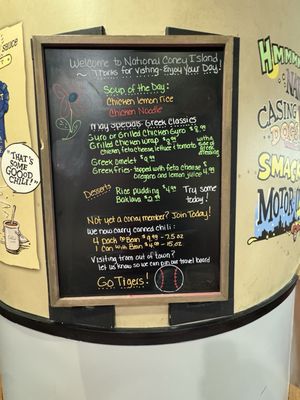 Welcome to National Coney Island
~ Thanks for Visiting - Enjoy Your Day!
Soup of the Day:
Chicken lemon rice
Chicken Noodle
May Specials Greek Classics
Gyro or Grilled Chicken Gyro $8.99
Grilled chicken wrap $9.99 with
chicken, feta cheese, lettuce & tomato side of dressing
Greek omelet $9.99
Greek Fries - topped with feta cheese &
oregano and lemon juice 4.99
Desserts
Rice pudding $4.99
Baklava $2.99
Try some
today!
Not yet a coney member? Join Today!
We now carry canned chili:
4 Pack No Bean $9.99 - 7.5 oz
1 Can With Bean $4.00 - 15 oz.
Visiting from out of town?
let us know so we can pin our travel board
Go Tigers!
sauce
THAT'S
SOME
GOOOD
CHILI!
HMMMM
CASING
DOGS
SMAC
MOTOR